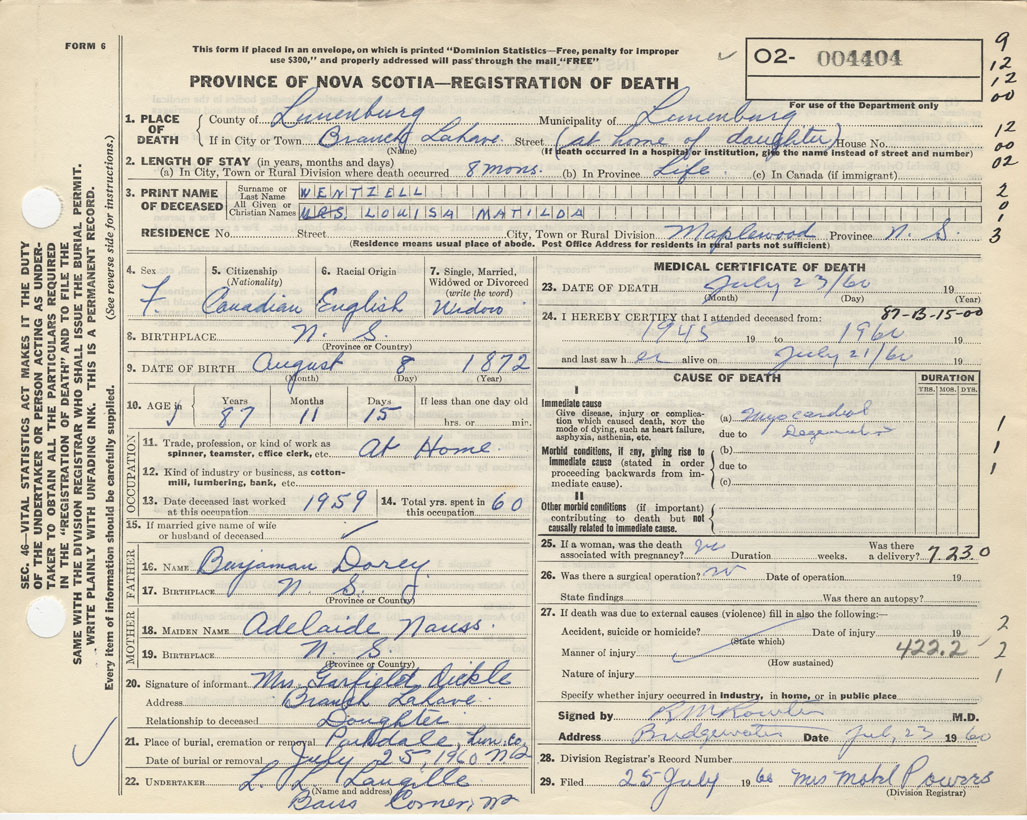 FORM 6
This form if placed in an envelope, on which is printed "Dominion Statistics—Free, penalty for improper
use $300," and properly addressed will pass through the mail "FREE"
O2- 004404
PROVINCE OF NOVA SCOTIA—REGISTRATION OF DEATH
For use of the Department only
9
12
12
00
12
00
02
2
0
3
1. PLACE OF DEATH
County of Lunenburg Municipality of Lunenburg
If in City or Town Branch Lahave Street (at home of daughter) House No.
(Name) (If death occurred in a hospital or institution, give the name instead of street and number)
2. LENGTH OF STAY (in years, months and days)
(a) In City, Town or Rural Division where death occurred 8 mons. (b) In Province Life (c) In Canada (if immigrant)
3. PRINT NAME OF DECEASED
Surname or Last Name WENTZELL
All Given or Christian Names MRS LOUISA MATILDA
RESIDENCE No. Street City, Town or Rural Division Maplewood Province N. S.
(Residence means usual place of abode. Post Office Address for residents in rural parts not sufficient)
4. Sex F.
5. Citizenship (Nationality) Canadian
6. Racial Origin English
7. Single, Married, Widowed or Divorced (write the word) Widow
8. BIRTHPLACE N. S.
(Province or Country)
9. DATE OF BIRTH August 8 1872
(Month) (Day) (Year)
10. AGE in Years Months Days If less than one day old
87 11 15 hrs. or min.
OCCUPATION
11. Trade, profession, or kind of work as
spinner, teamster, office clerk, etc. At Home
12. Kind of industry or business, as cotton-
mill, lumbering, bank, etc.
13. Date deceased last worked at this occupation 1959
14. Total yrs. spent in this occupation 60
15. If married give name of wife
or husband of deceased
FATHER
16. NAME Benjaman Dorey
17. BIRTHPLACE N. S.
(Province or Country)
MOTHER
18. MAIDEN NAME Adelaide Nauss.
19. BIRTHPLACE N. S.
(Province or Country)
20. Signature of informant Mrs Garfield Oickle
Address Branch Lahave
Relationship to deceased Daughter
21. Place of burial, cremation or removal Parkdale, Lun. Co.
Date of burial or removal July 25, 1960 NS
22. UNDERTAKER L. L. Langille
(Name and address)
Barss Corner, NS
MEDICAL CERTIFICATE OF DEATH
23. DATE OF DEATH July 23/60 19
(Month) (Day) (Year)
24. I HEREBY CERTIFY that I attended deceased from: 87-B-15-00
1945 19 to 1960 19
and last saw her alive on July 21/60 19
CAUSE OF DEATH
DURATION
YRS. MOS. DYS.
I
Immediate cause
Give disease, injury or complica-
tion which caused death, NOT the
mode of dying, such as heart failure,
asphyxia, asthenia, etc.
(a) Myocardial
due to
Morbid conditions, if any, giving rise to
immediate cause (stated in order
proceeding backwards from im-
mediate cause).
(b)
due to
(c)
1
1
1
II
Other morbid conditions (if important)
contributing to death but not
causally related to immediate cause.
25. If a woman, was the death
associated with pregnancy? no Duration weeks. Was there a delivery? 7230
26. Was there a surgical operation? no Date of operation 19
State findings Was there an autopsy?
27. If death was due to external causes (violence) fill in also the following:—
Accident, suicide or homicide? Date of injury 19
(State which)
Manner of injury 422.2
(How sustained)
Nature of injury
2
2
1
Specify whether injury occurred in industry, in home, or in public place
Signed by M.D.
Address Bridgewater Date July 23 1960
28. Division Registrar's Record Number
29. Filed 25 July 1960 Mrs Powers
(Division Registrar)
SEC. 46—VITAL STATISTICS ACT MAKES IT THE DUTY
OF THE UNDERTAKER OR PERSON ACTING AS UNDER-
TAKER TO OBTAIN ALL THE PARTICULARS REQUIRED
IN THE "REGISTRATION OF DEATH" AND TO FILE THE
SAME WITH THE DIVISION REGISTRAR WHO SHALL ISSUE THE BURIAL PERMIT.
WRITE PLAINLY WITH UNFADING INK. THIS IS A PERMANENT RECORD.
Every item of information should be carefully supplied. (See reverse side for instructions.)